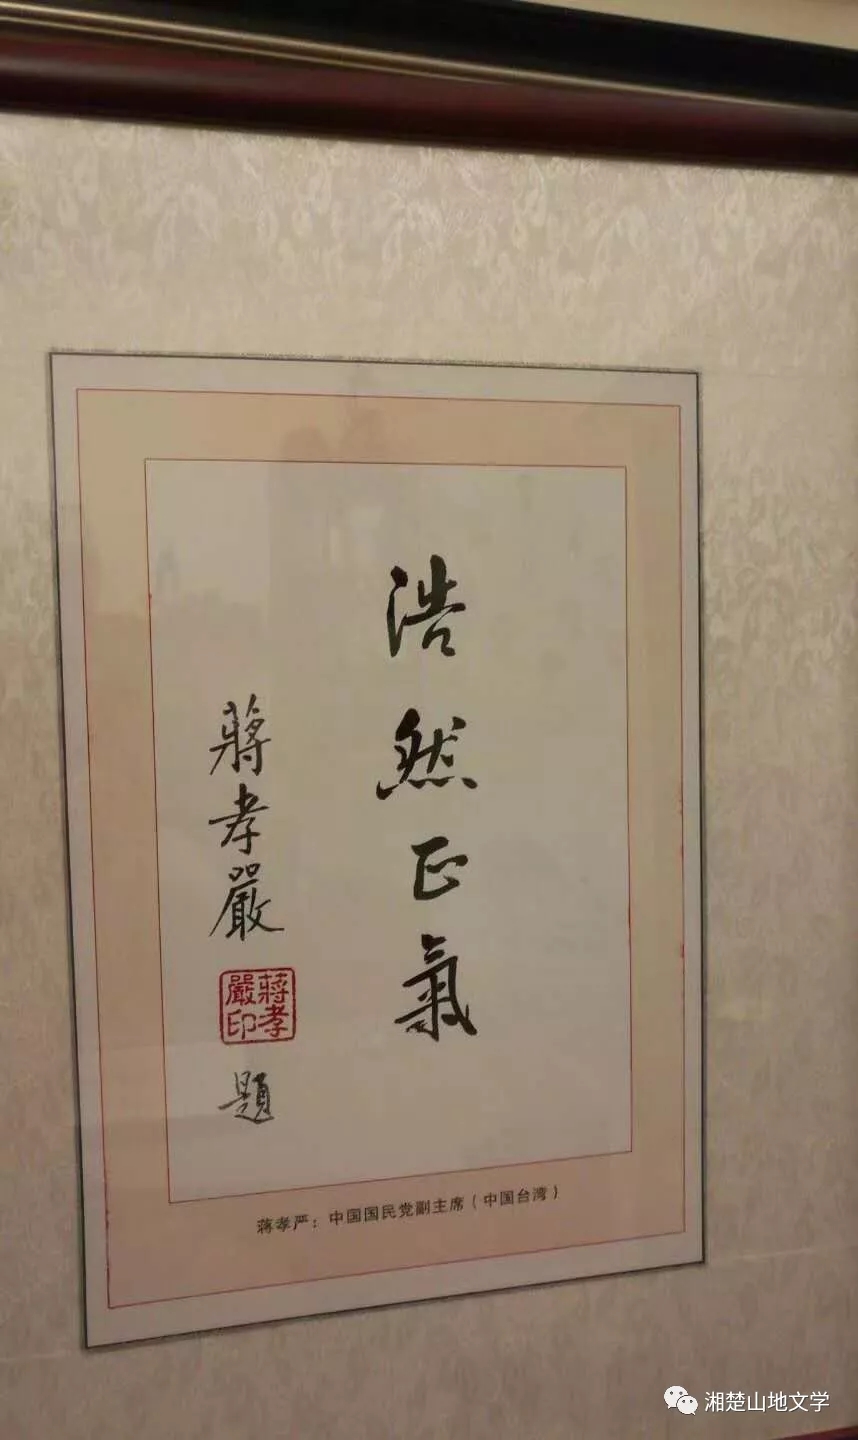 浩然正氣
蔣孝嚴
蔣孝嚴印
題
蒋孝严：中国国民党副主席（中国台湾）
湘楚山地文学